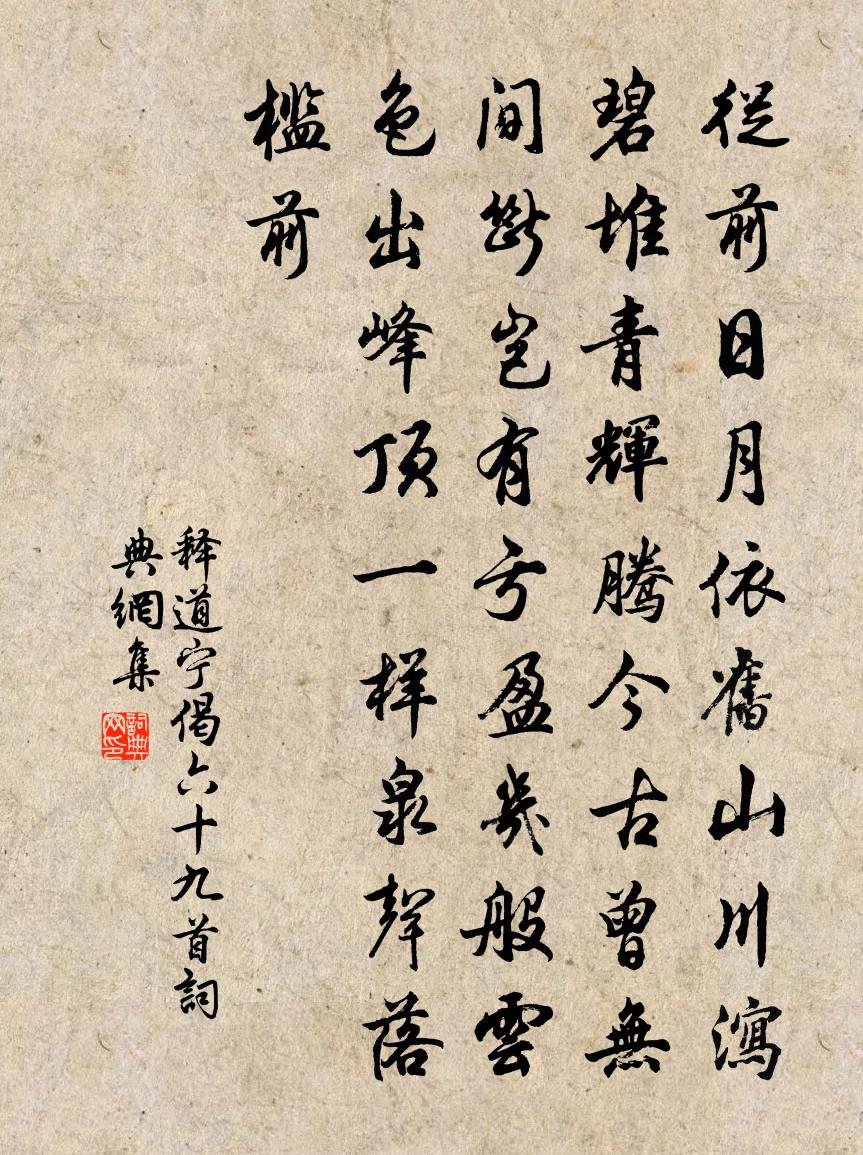 從前日月依舊山川瀉
碧堆青輝騰今古曾無
間斷豈有亏盈幾般雲
色出峰頂一样泉聲落
檻前
释道宁偈六十九首詞
典網集
詞典
网印